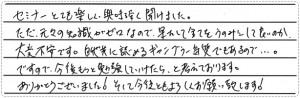 セミナーとても楽しく興味深く聞けました。
ただ、元々の知識がゼロなので、果たして全てをうのみにして良いのか、
大変不安です。自然に認めるギャンブラー自覚でもあるので…。
ですので、今後もっと勉強していけたら、と考えております。
ありがとうございました！そして今後ともよろしくお願い致します！